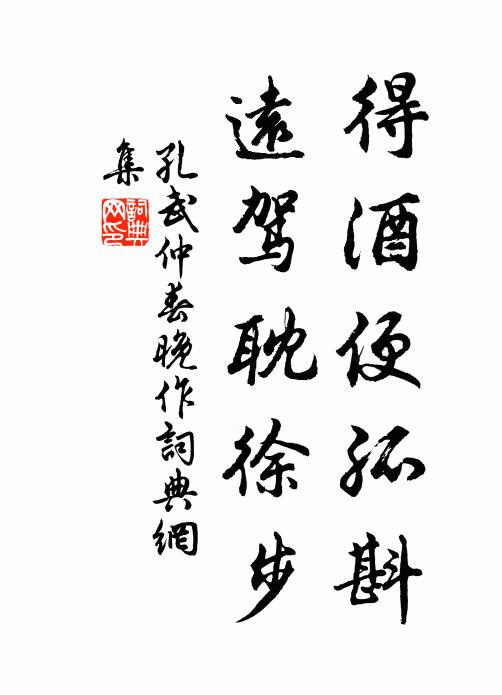 得酒便孤斟
遠駕耽徐步
孔武仲春晚作詞典網
集
詞典網印